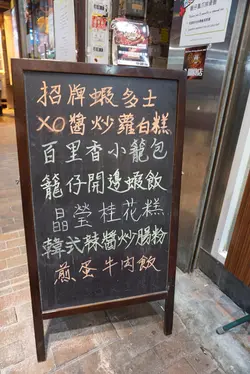 招牌蝦多士
XO醬炒蘿白糕
百里香小籠包
籠仔開邊蝦飯
晶瑩桂花糕
韓式辣醬炒腸粉
煎蛋牛肉飯